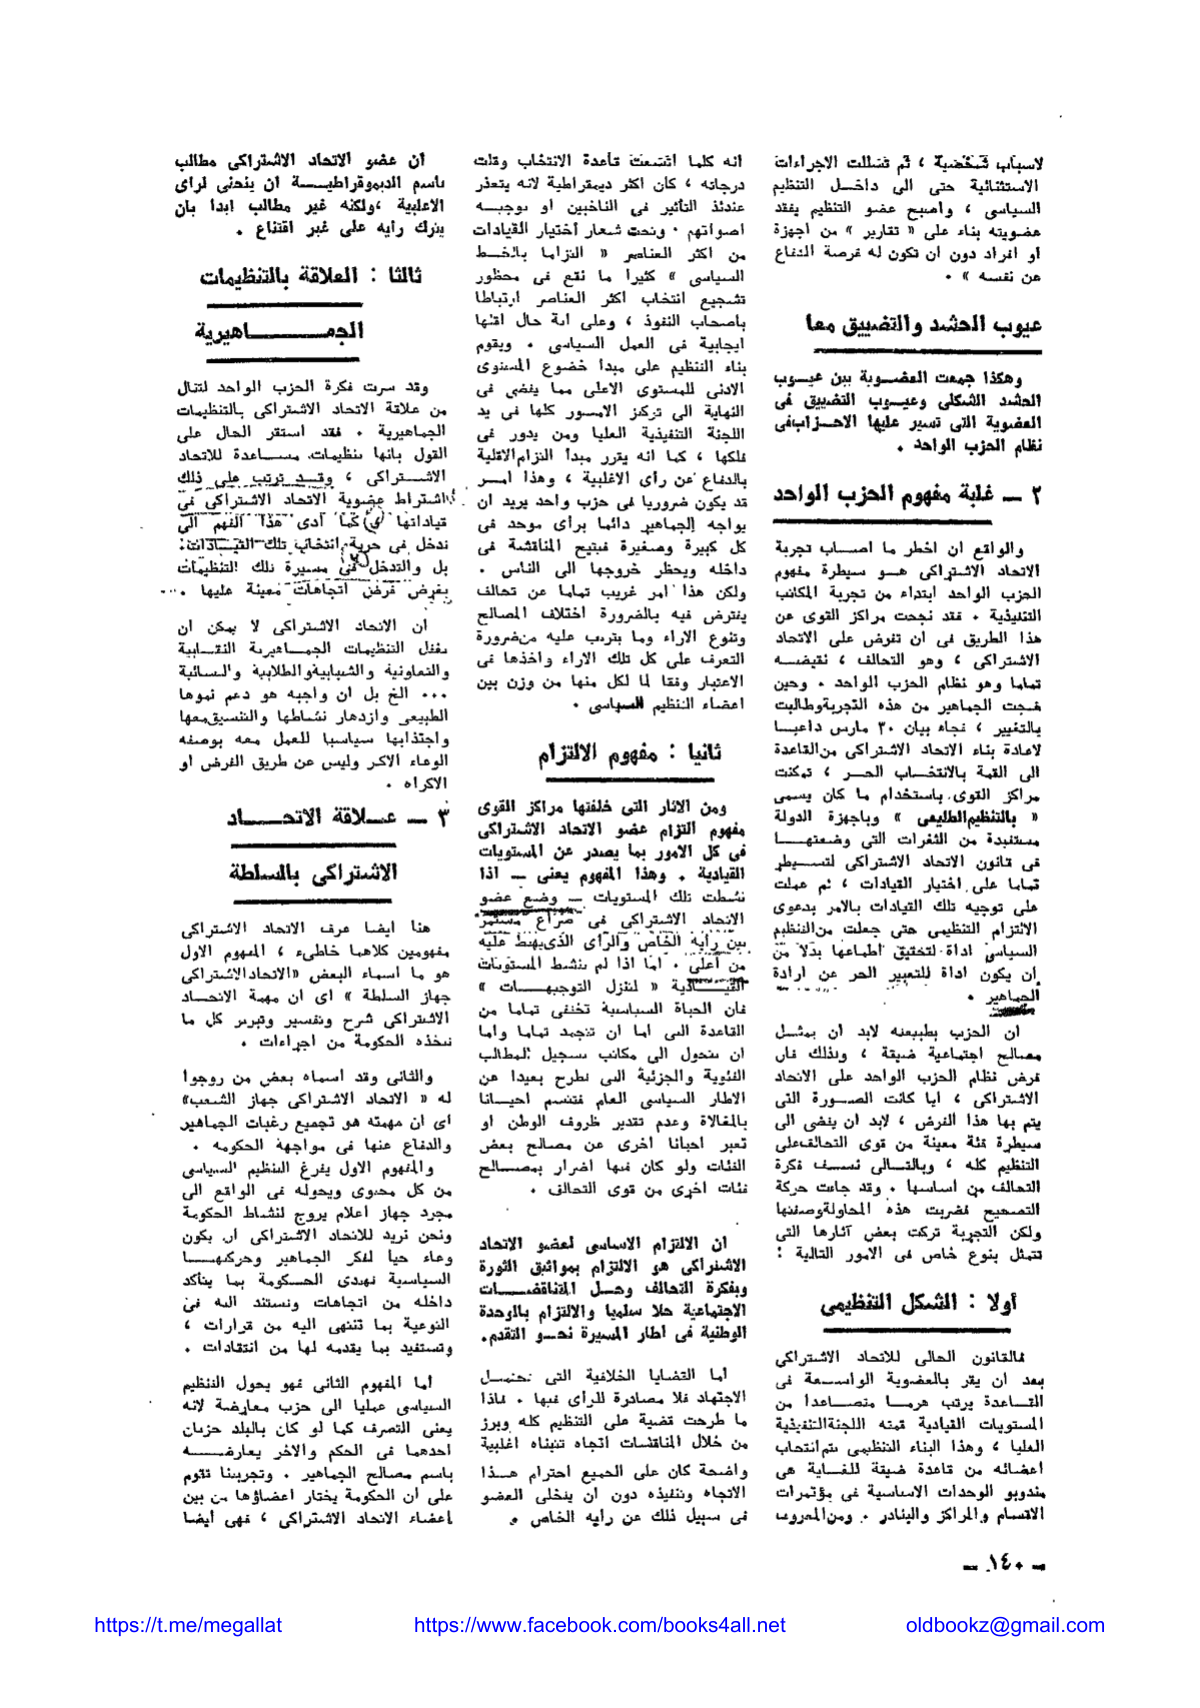 لاسباب شخصية ، ثم تسللت الاجراءات
الاستثنائية حتى الى داخل التنظيم
السياسى ، واصبح عضو التنظيم يفقد
عضويته بناء على « تقارير » من اجهزة
او افراد دون ان تكون له فرصة الدفاع
عن نفسه » .
عيوب الحشد والتضييق معا
وهكذا جمعت العضوية بين عيوب
الحشد الشكلى وعيوب التضييق فى
العضوية التى تسير عليها الاحزاب فى
نظام الحزب الواحد .
٢ ــ غلبة مفهوم الحزب الواحد
والواقع ان اخطر ما اصاب تجربة
الاتحاد الاشتراكى هو سيطرة مفهوم
الحزب الواحد ابتداء من تجربة المكاتب
التنفيذية . فقد نجحت مراكز القوى عن
هذا الطريق فى ان تفرض على الاتحاد
الاشتراكى ، وهو التحالف ، نقيضه
تماما وهو نظام الحزب الواحد . وحين
ضجت الجماهير من هذه التجربة وطالبت
بالتغيير ، فجاء بيان ٣٠ مارس داعيا
لاعادة بناء الاتحاد الاشتراكى من القاعدة
الى القمة بالانتخاب الحر ، تمكنت
مراكز القوى باستخدام ما كان يسمى
« بالتنظيم الطليعى » وباجهزة الدولة
مستفيدة من الثغرات التى وضعتها
فى قانون الاتحاد الاشتراكى لتسيطر
تماما على اختيار القيادات ، ثم عملت
على توجيه تلك القيادات بالامر بدعوى
الالتزام التنظيمى حتى جعلت من التنظيم
السياسى اداة لتحقيق اطماعها بدلا من
ان يكون اداة للتعبير الحر عن ارادة
الجماهير .
ان الحزب بطبيعته لابد ان يمثل
مصالح اجتماعية ضيقة ، ولذلك فان
فرض نظام الحزب الواحد على الاتحاد
الاشتراكى ، ايا كانت الصورة التى
يتم بها هذا الفرض ، لابد ان يفضى الى
سيطرة فئة معينة من قوى التحالف على
التنظيم كله ، وبالتالى نسف فكرة
التحالف من اساسها . وقد جاءت حركة
التصحيح فضربت هذه المحاولة وصفتها
ولكن التجربة تركت بعض آثارها التى
تتمثل بنوع خاص فى الامور التالية :
أولا : الشكل التنظيمى
فالقانون الحالى للاتحاد الاشتراكى
بعد ان يقر بالعضوية الواسعة فى
القاعدة يرتب هرما متصاعدا من
المستويات القيادية قمته اللجنة التنفيذية
العليا ، وهذا البناء التنظيمى يتم انتخاب
اعضائه من قاعدة ضيقة للغاية هى
مندوبو الوحدات الاساسية فى مؤتمرات
الاقسام والمراكز والبنادر . ومن المعروف
انه كلما اتسعت قاعدة الانتخاب وقلت
درجاته ، كان اكثر ديمقراطية لانه يتعذر
عندئذ التأثير فى الناخبين او توجيه
اصواتهم . وتحت شعار اختيار القيادات
من اكثر العناصر « التزاما بالخط
السياسى » كثيرا ما نقع فى محظور
تشجيع انتخاب اكثر العناصر ارتباطا
باصحاب النفوذ ، وعلى اية حال اقلها
ايجابية فى العمل السياسى . ويقوم
بناء التنظيم على مبدأ خضوع المستوى
الادنى للمستوى الاعلى مما يفضى فى
النهاية الى تركز الامور كلها فى يد
اللجنة التنفيذية العليا ومن يدور فى
فلكها ، كما انه يقرر مبدأ التزام الاقلية
بالدفاع عن رأى الاغلبية ، وهذا امر
قد يكون ضروريا فى حزب واحد يريد ان
يواجه الجماهير دائما برأى موحد فى
كل كبيرة وصغيرة فيتيح المناقشة فى
داخله ويحظر خروجها الى الناس .
ولكن هذا امر غريب تماما عن تحالف
يفترض فيه بالضرورة اختلاف المصالح
وتنوع الاراء وما يترتب عليه من ضرورة
التعرف على كل تلك الاراء واخذها فى
الاعتبار وفقا لما لكل منها من وزن بين
اعضاء التنظيم السياسى .
ثانيا : مفهوم الالتزام
ومن الاثار التى خلفتها مراكز القوى
مفهوم التزام عضو الاتحاد الاشتراكى
فى كل الامور بما يصدر عن المستويات
القيادية . وهذا المفهوم يعنى ــ اذا
نشطت تلك المستويات ــ وضع عضو
الاتحاد الاشتراكى فى صراع مستمر
بين رأيه الخاص والرأى الذى يهبط عليه
من أعلى . اما اذا لم تنشط المستويات
القيادية « لتنزل التوجيهات »
فان الحياة السياسية تختفى تماما من
القاعدة التى اما ان تتجمد تماما واما
ان تتحول الى مكاتب تسجيل المطالب
الفئوية والجزئية التى تطرح بعيدا عن
الاطار السياسى العام فتتسم احيانا
بالمغالاة وعدم تقدير ظروف الوطن او
تعبر احيانا اخرى عن مصالح بعض
الفئات ولو كان فيها اضرار بمصالح
فئات اخرى من قوى التحالف .
ان الالتزام الاساسى لعضو الاتحاد
الاشتراكى هو الالتزام بمواثيق الثورة
وبفكرة التحالف وحل المتناقضات
الاجتماعية حلا سلميا والالتزام بالوحدة
الوطنية فى اطار المسيرة نحو التقدم.
أما القضايا الخلافية التى تحتمل
الاجتهاد فلا مصادرة للرأى فيها . فاذا
ما طرحت قضية على التنظيم كله وبرز
من خلال المناقشات اتجاه تتبناه اغلبية
واضحة كان على الجميع احترام هذا
الاتجاه وتنفيذه دون ان يتخلى العضو
فى سبيل ذلك عن رأيه الخاص .
ان عضو الاتحاد الاشتراكى مطالب
باسم الديموقراطية ان ينحنى لرأى
الاغلبية ، ولكنه غير مطالب ابدا بان
يترك رأيه على غير اقتناع .
ثالثا : العلاقة بالتنظيمات
الجماهيرية
وقد سرت فكرة الحزب الواحد لتنال
من علاقة الاتحاد الاشتراكى بالتنظيمات
الجماهيرية . فقد استقر الحال على
القول بانها تنظيمات مساعدة للاتحاد
الاشتراكى ، وقد ترتب على ذلك
اشتراط عضوية الاتحاد الاشتراكى فى
قياداتها كما أدى هذا الفهم الى
تدخل فى حرية انتخاب تلك القيادات
بل والتدخل فى مسيرة تلك التنظيمات
بغرض فرض اتجاهات معينة عليها . . . .
ان الاتحاد الاشتراكى لا يمكن ان
يغفل التنظيمات الجماهيرية النقابية
والتعاونية والشبابية والطلابية والنسائية
... الخ بل ان واجبه هو دعم نموها
الطبيعى وازدهار نشاطها والتنسيق معها
واجتذابها سياسيا للعمل معه بوصفه
الوعاء الاكبر وليس عن طريق الفرض او
الاكراه .
٣ ــ علاقة الاتحاد
الاشتراكى بالسلطة
هنا ايضا عرف الاتحاد الاشتراكى
مفهومين كلاهما خاطىء ، المفهوم الاول
هو ما اسماه البعض «الاتحاد الاشتراكى
جهاز السلطة » اى ان مهمة الاتحاد
الاشتراكى شرح وتفسير وتبرير كل ما
تتخذه الحكومة من اجراءات .
والثانى وقد اسماه بعض من روجوا
له « الاتحاد الاشتراكى جهاز الشعب»
اى ان مهمته هو تجميع رغبات الجماهير
والدفاع عنها فى مواجهة الحكومة .
والمفهوم الاول يفرغ التنظيم السياسى
من كل محتوى ويحوله فى الواقع الى
مجرد جهاز اعلام يروج لنشاط الحكومة
ونحن نريد للاتحاد الاشتراكى ان يكون
وعاء حيا لفكر الجماهير وحركتها
السياسية تهتدى الحكومة بما يتأكد
داخله من اتجاهات وتستند اليه فى
التوعية بما تنتهى اليه من قرارات ،
وتستفيد بما يقدمه لها من انتقادات .
أما المفهوم الثانى فهو يحول التنظيم
السياسى عمليا الى حزب معارضة لانه
يعنى التصرف كما لو كان بالبلد حزبان
احدهما فى الحكم والاخر يعارضه
باسم مصالح الجماهير . وتجربتنا تقوم
على ان الحكومة يختار اعضاؤها من بين
اعضاء الاتحاد الاشتراكى ، فهى ايضا
ــ ١٤٠ ــ
https://t.me/megallat
https://www.facebook.com/books4all.net
oldbookz@gmail.com